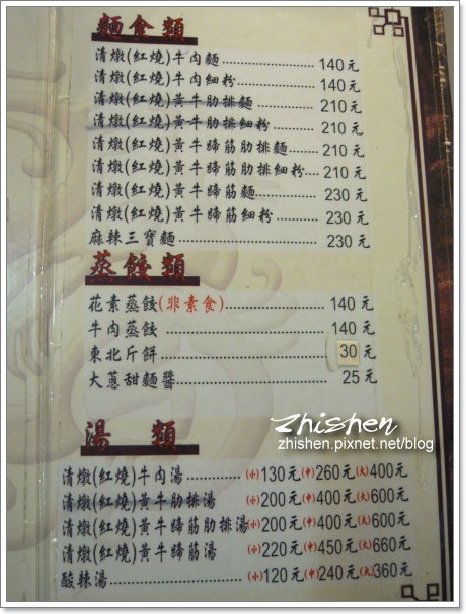 麵食類
清燉(紅燒)牛肉麵..................140元
清燉(紅燒)牛肉細粉..................140元
清燉(紅燒)黃牛肋排麵..............210元
清燉(紅燒)黃牛肋排細粉............210元
清燉(紅燒)黃牛蹄筋肋排麵........210元
清燉(紅燒)黃牛蹄筋肋排細粉...210元
清燉(紅燒)黃牛蹄筋麵..............230元
清燉(紅燒)黃牛蹄筋細粉............230元
麻辣三寶麵..............................230元
蒸餃類
花素蒸餃(非素食)....................140元
牛肉蒸餃................................140元
東北斤餅................................30元
大蔥甜麵醬..............................25元
Zhishen
zhishen.pixnet.net/blog
湯類
清燉(紅燒)牛肉湯..........(小)130元(中)260元(大)400元
清燉(紅燒)黃牛肋排湯....(小)200元(中)400元(大)600元
清燉(紅燒)黃牛蹄筋肋排湯(小)200元(中)400元(大)600元
清燉(紅燒)黃牛蹄筋湯....(小)220元(中)450元(大)660元
酸辣湯........................(小)120元(中)240元(大)360元